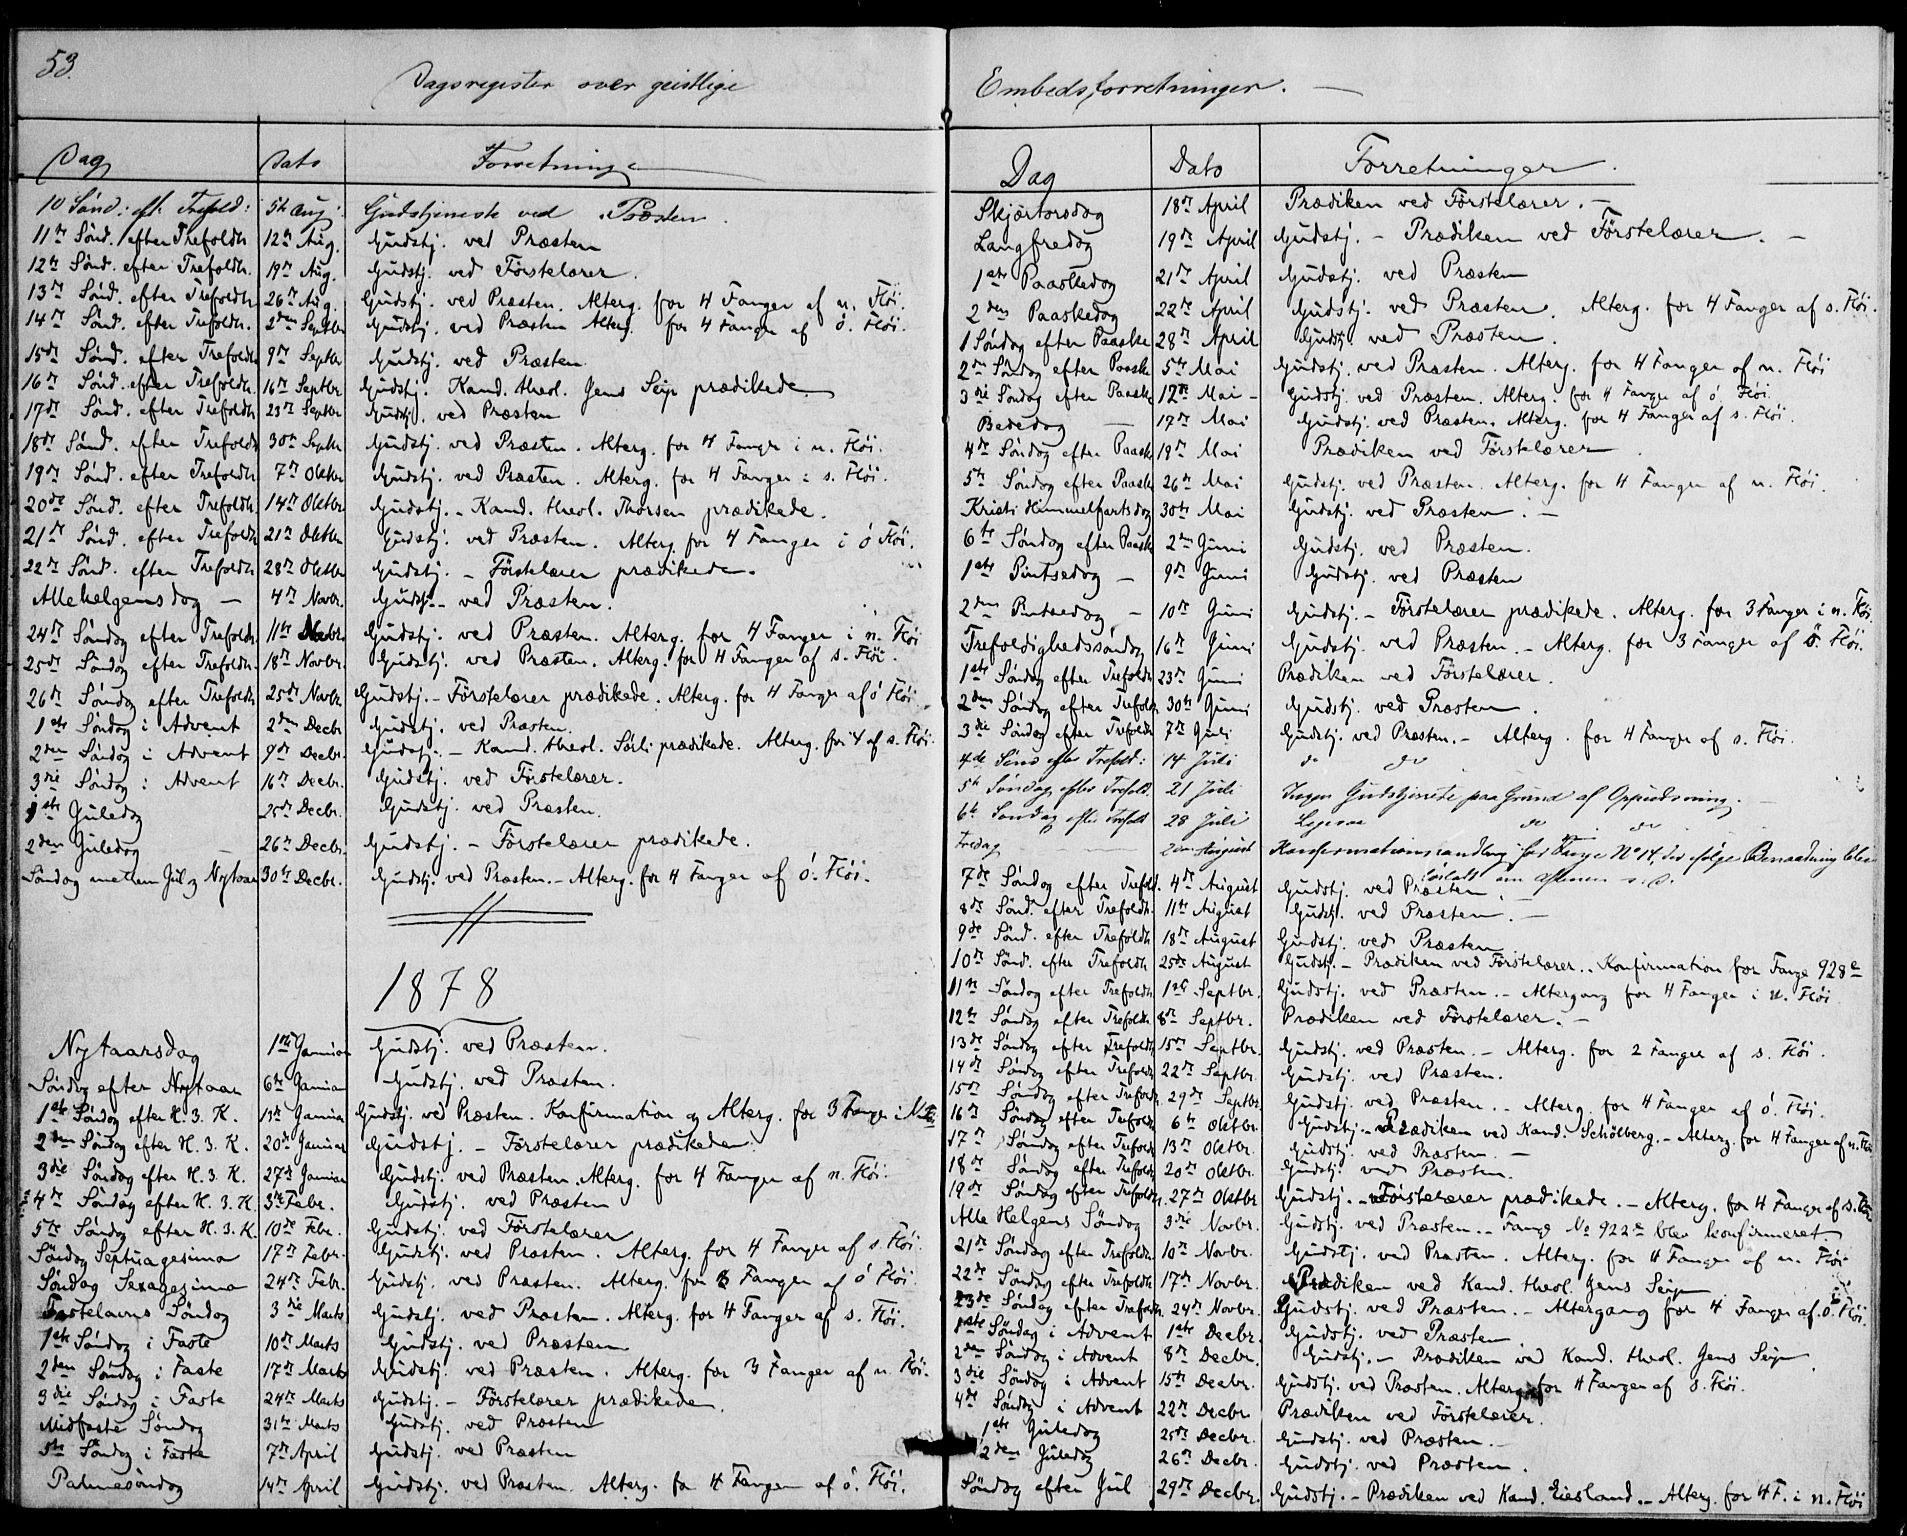 53.
Dagsregister over geistlige
Dag Dato Forretninger
10 Sönd: eft. Trefold: 5te Aug. Gudstjeneste ved Præsten.
11te Sönd. efter Trefoldh 12te Aug. Gudstj. ved Præsten
12te Sönd. efter Trefoldh. 19de Aug. Gudstj. ved Förstelærer.
13de Sönd. efter Trefoldh 26de Aug. Gudstj. ved Præsten. Alterg. for 4 Fanger af n. Flöi.
14de Sönd. efter Trefoldh. 2den Septbr Gudstj. ved Præsten Alterg. for 4 Fanger af ö. Flöi.
15de Sönd. efter Trefoldh 9de Septbr Gudstj. ved Præsten.
16de Sönd. efter Trefoldh. 16de Septbr Gudstj. Kand. theol. Jens Seip prædikede
17de Sönd. efter Trefoldh 23de Septbr Gudstj. ved Præsten
18de Sönd. efter Trefoldh 30te Septbr Gudstj. ved Præsten. Alterg. for 4 Fanger i n. Flöi.
19de Sönd. efter Trefoldh 7de Oktbr Gudstj. ved Præsten. Alterg. for 4 Fanger i s. Flöi.
20de Sönd. efter Trefoldh. 14de Oktbr Gudstj. - Kand. theol. Thorsen prædikede.
21de Sönd. efter Trefoldh 21de Oktbr Gudstj. ved Præsten. Alterg. for 4 Fanger i ö Flöi.
22de Sönd. efter Trefoldh 28de Oktbr Gudstj. - Förstelærer prædikede.
Allehelgensdag - 4de Novbr. Gudstj. - ved Præsten.
24de Söndag efter Trefoldh. 11te Novbr. Gudstj. ved Præsten. Alterg. for 4 Fanger i n. Flöi
25de Söndag efter Trefoldh. 18de Novbr. Gudstj. ved Præsten. Alterg. for 4 Fanger af s. Flöi.
26de Söndag efter Trefoldh 25de Novbr. Gudstj. - Förstelærer prædikede. Alterg. for 4 Fanger af ö Flöi
1ste Söndag i Advent 2den Decbr Gudstj. ved Præsten.
2den Söndag i Advent 9de Decbr. Gudstj. - Kand. theol. Sörli prædikede. Alterg. for 4 af s. Flöi.
3die Söndag i Advent 16de Decbr. Gudstj. ved Förstelærer.
1ste Juledag 25de Decbr. Gudstj. ved Præsten.
2den Juledag - 26de Decbr. Gudstj. - Förstelærer prædikede.
Söndag mellem Jul og Nytaar 30te Decbr. Gudstj. ved Præsten. - Alterg. for 4 Fanger af ö. Flöi.
1878
Nytaarsdag 1ste Januar Gudstj. ved Præsten.
Söndag efter Nytaar 6te Januar Gudstj. ved Præsten.
1ste Söndag efter H. 3. K. 13de Januar Gudstj. ved Præsten. Konfirmation og Alterg. for 3 Fanger i
2den Söndag efter H. 3. K. 20de Januar Gudstj. - Förstelærer prædikede.
3die Söndag efter H. 3. K. 27de Januar Gudstj. ved Præsten. Alterg. for 4 Fanger af n. Flöi.
4de Söndag efter H. 3. K. 3die Febr. Gudstj. ved Præsten
5te Söndag efter H. 3. K. 10de Febr. Gudstj. ved Förstelærer
Söndag Septuagesima 17de Febr. Gudstj. ved Præsten. Alterg. for 4 Fanger af s. Flöi.
Söndag Sexagesima 24de Febr. Gudstj. ved Præsten. Alterg. for Fanger af ö Flöi.
Fastelavns Söndag 3die Marts Gudstj. ved Præsten. Alterg. for 4 Fanger af s. Flöi.
1ste Söndag i Faste 10de Marts Gudstj. ved Præsten
2den Söndag i Faste 17de Marts Gudstj. ved Præsten. Alterg. for 3 Fanger af n. Flöi.
3die Söndag i Faste 24de Marts Gudstj. - Förstelærer prædikede.
Midfaste Söndag 31te Marts Gudstj. ved Præsten
5te Söndag i Faste 7de April Gudstj. ved Præsten
Palmesöndag 14de April Gudstj. ved Præsten. Alterg. for 4 Fanger af ö. Flöi.
Embedsforretninger. -
Dag Dato Forretninger.
Skjærtorsdag 18de April Prædiken ved Förstelærer. -
Langfredag 19de April Gudstj. - Prædiken ved Förstelærer. -
1ste Paaskedag 21de April Gudstj. ved Præsten
2den Paaskedag 22de April Gudstj. ved Præsten. Alterg. for 4 Fanger af s. Flöi.
1 Söndag efter Paaske 28de April Gudstj. ved Præsten.
2den Söndag efter Paaske 5te Mai Gudstj. ved Præsten. Alterg. for 4 Fanger af n. Flöi
3die Söndag efter Paaske 12te Mai - Gudstj. ved Præsten. Alterg. for 4 Fanger af ö. Flöi.
Bededag - 17de Mai Gudstj. ved Præsten. Alterg. for 4 Fanger af s. Flöi.
4de Söndag efter Paaske 19de Mai Prædiken ved Förstelærer.
5te Söndag efter Paaske 26de Mai Gudstj. ved Præsten. Alterg. for 4 Fanger af n. Flöi.
Kristi Himmelfartsdag 30te Mai Gudstj. ved Præsten. -
6te Söndag efter Paaske 2den Juni Gudstj. ved Præsten.
1ste Pintsedag - 9de Juni Gudstj. ved Præsten
2den Pintsedag - 10de Juni Gudstj. - Förstelærer prædikede. Alterg. for 3 Fanger i n. Flöi.
Trefoldighedssöndag 16de Juni Gudstj. ved Præsten. - Alterg. for 3 Fanger af ö. Flöi.
1ste Söndag efter Trefoldh 23de Juni Prædiken ved Förstelærer.
2den Söndag efter Trefoldh 30te Juni Gudstj. ved Præsten.
3die Söndag efter Trefoldh 7de Juli Gudstj. ved Præsten. - Alterg. for 4 Fanger af s. Flöi.
4de Sönd efter Trefold: 14 Juli do do
5te Söndag efter Trefold. 21 Juli Ingen Gudstjeneste paa Grund af Oppudsning. -
6te Söndag efter Trefold 28 Juli Ligesaa do do
Fredag 2den August Konfirmationshandling for Fange No 14, der ifølge Benaadning blev
løsladt om Aftenen s. D.
7de Söndag efter Trefoldh. 4de August Gudstj. ved Præsten
8de Sönd. efter Trefoldh. 11te August Gudstj. ved Præsten. -
9de Sönd. efter Trefoldh 18de August Gudstj. ved Præsten
10de Sönd. efter Trefoldh 25de August Gudstj. - Prædiken ved Förstelærer. . Konfirmation for Fange 928
11te Söndag efter Trefoldh 1ste Septbr. Gudstj. ved Præsten. - Altergang for 4 Fanger i n. Flöi
12te Söndag efter Trefoldh 8de Septbr. Prædiken ved Förstelærer. -
13de Söndag efter Trefoldh 15de Septbr. Gudstj. ved Præsten. - Alterg. for 2 Fanger af s. Flöi.
14de Söndag efter Trefoldh 22de Septbr. Gudstj. ved Præsten.
15de Söndag efter Trefoldh 29de Septbr Gudstj. ved Præsten. . Alterg. for 4 Fanger af ö. Flöi.
16de Söndag efter Trefoldh 6te Oktbr Gudstj. - Prædiken ved Kand. Schölberg. - Alterg. for 4 Fanger af n. Flöi
17de Söndag efter Trefoldh 13de Oktbr. Gudstj. ved Præsten. -
18de Söndag efter Trefoldh 20de Oktbr. Gudstj. ved Præsten.
19de Söndag efter Trefoldh. 27de Oktbr Gudstj. - Förstelærer prædikede. - Alterg. for 4 Fanger af s. Flöi
Alle Helgens Söndag 3die Novbr. Gudstj. ved Præsten. . Fange No 922 blev konfirmeret.
21de Söndag efter Trefoldh. 10de Novbr. Gudstj. ved Præsten. Alterg. for 4 Fanger af n. Flöi
22de Söndag efter Trefoldh 17de Novbr. Prædiken ved Kand. theol. Jens Seip
23de Söndag efter Trefoldh. 24de Novbr. Gudstj. ved Præsten. - Altergang for 4 Fanger af ö. Flöi.
1ste Söndag i Advent 1ste Decbr. Gudstj. ved Præsten
2den Söndag i Advent 8de Decbr. Gudstj. - Prædiken ved Kand. theol. Jens Seip.
3die Söndag i Advent 15de Decbr. Gudstj. ved Præsten. Alterg. for 4 Fanger af s. Flöi.
4de Söndag i Advent 22de Decbr Prædiken ved Förstelærer.
1ste Juledag 25de Decbr. Gudstj. ved Præsten. -
2den Juledag 26de Decbr. Gudstj. ved Præsten.
Söndag efter Jul 29de Decbr. Gudstj. - Prædiken ved Kand. Eiesland. - Alterg. for 4 F. i n. Flöi